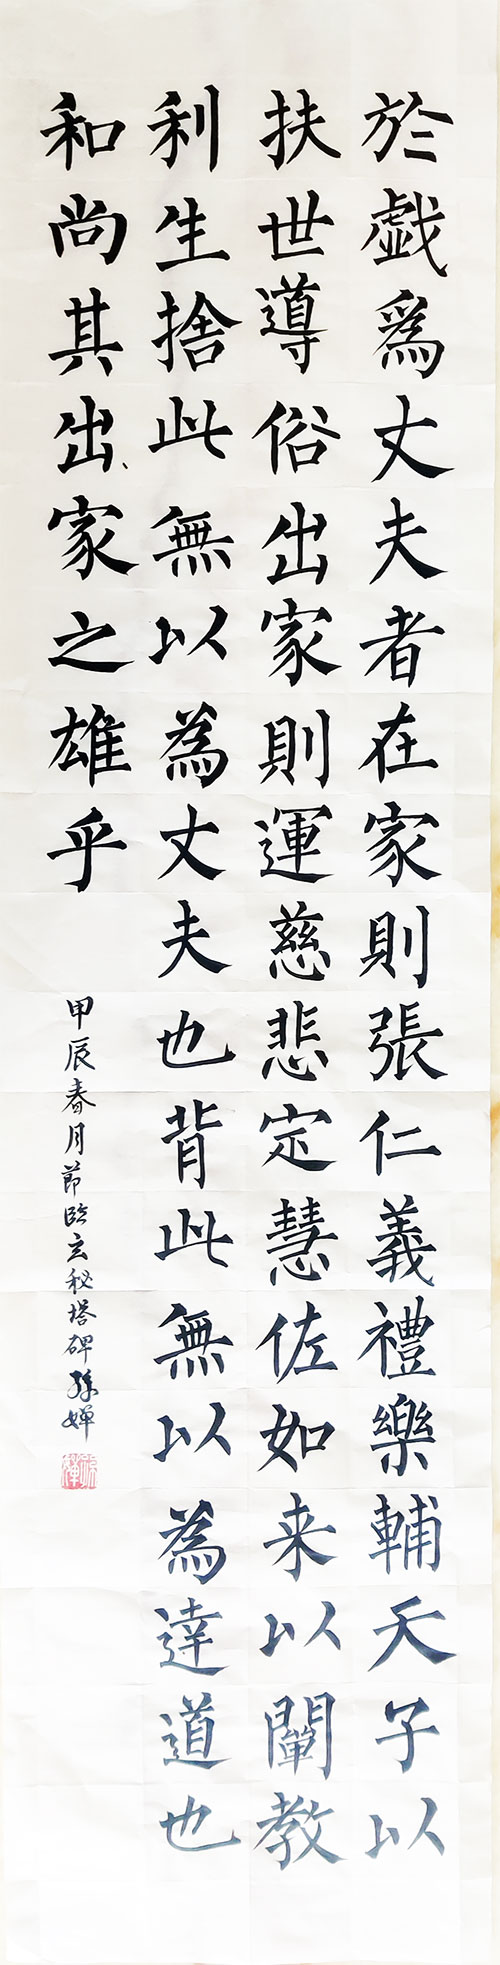 於戲爲丈夫者在家則張仁義禮樂輔天子以
扶世導俗出家則運慈悲定慧佐如来以闡教
利生捨此無以為丈夫也背此無以為達道也
和尚其出家之雄乎
甲辰春月節臨玄秘塔碑孫嬋